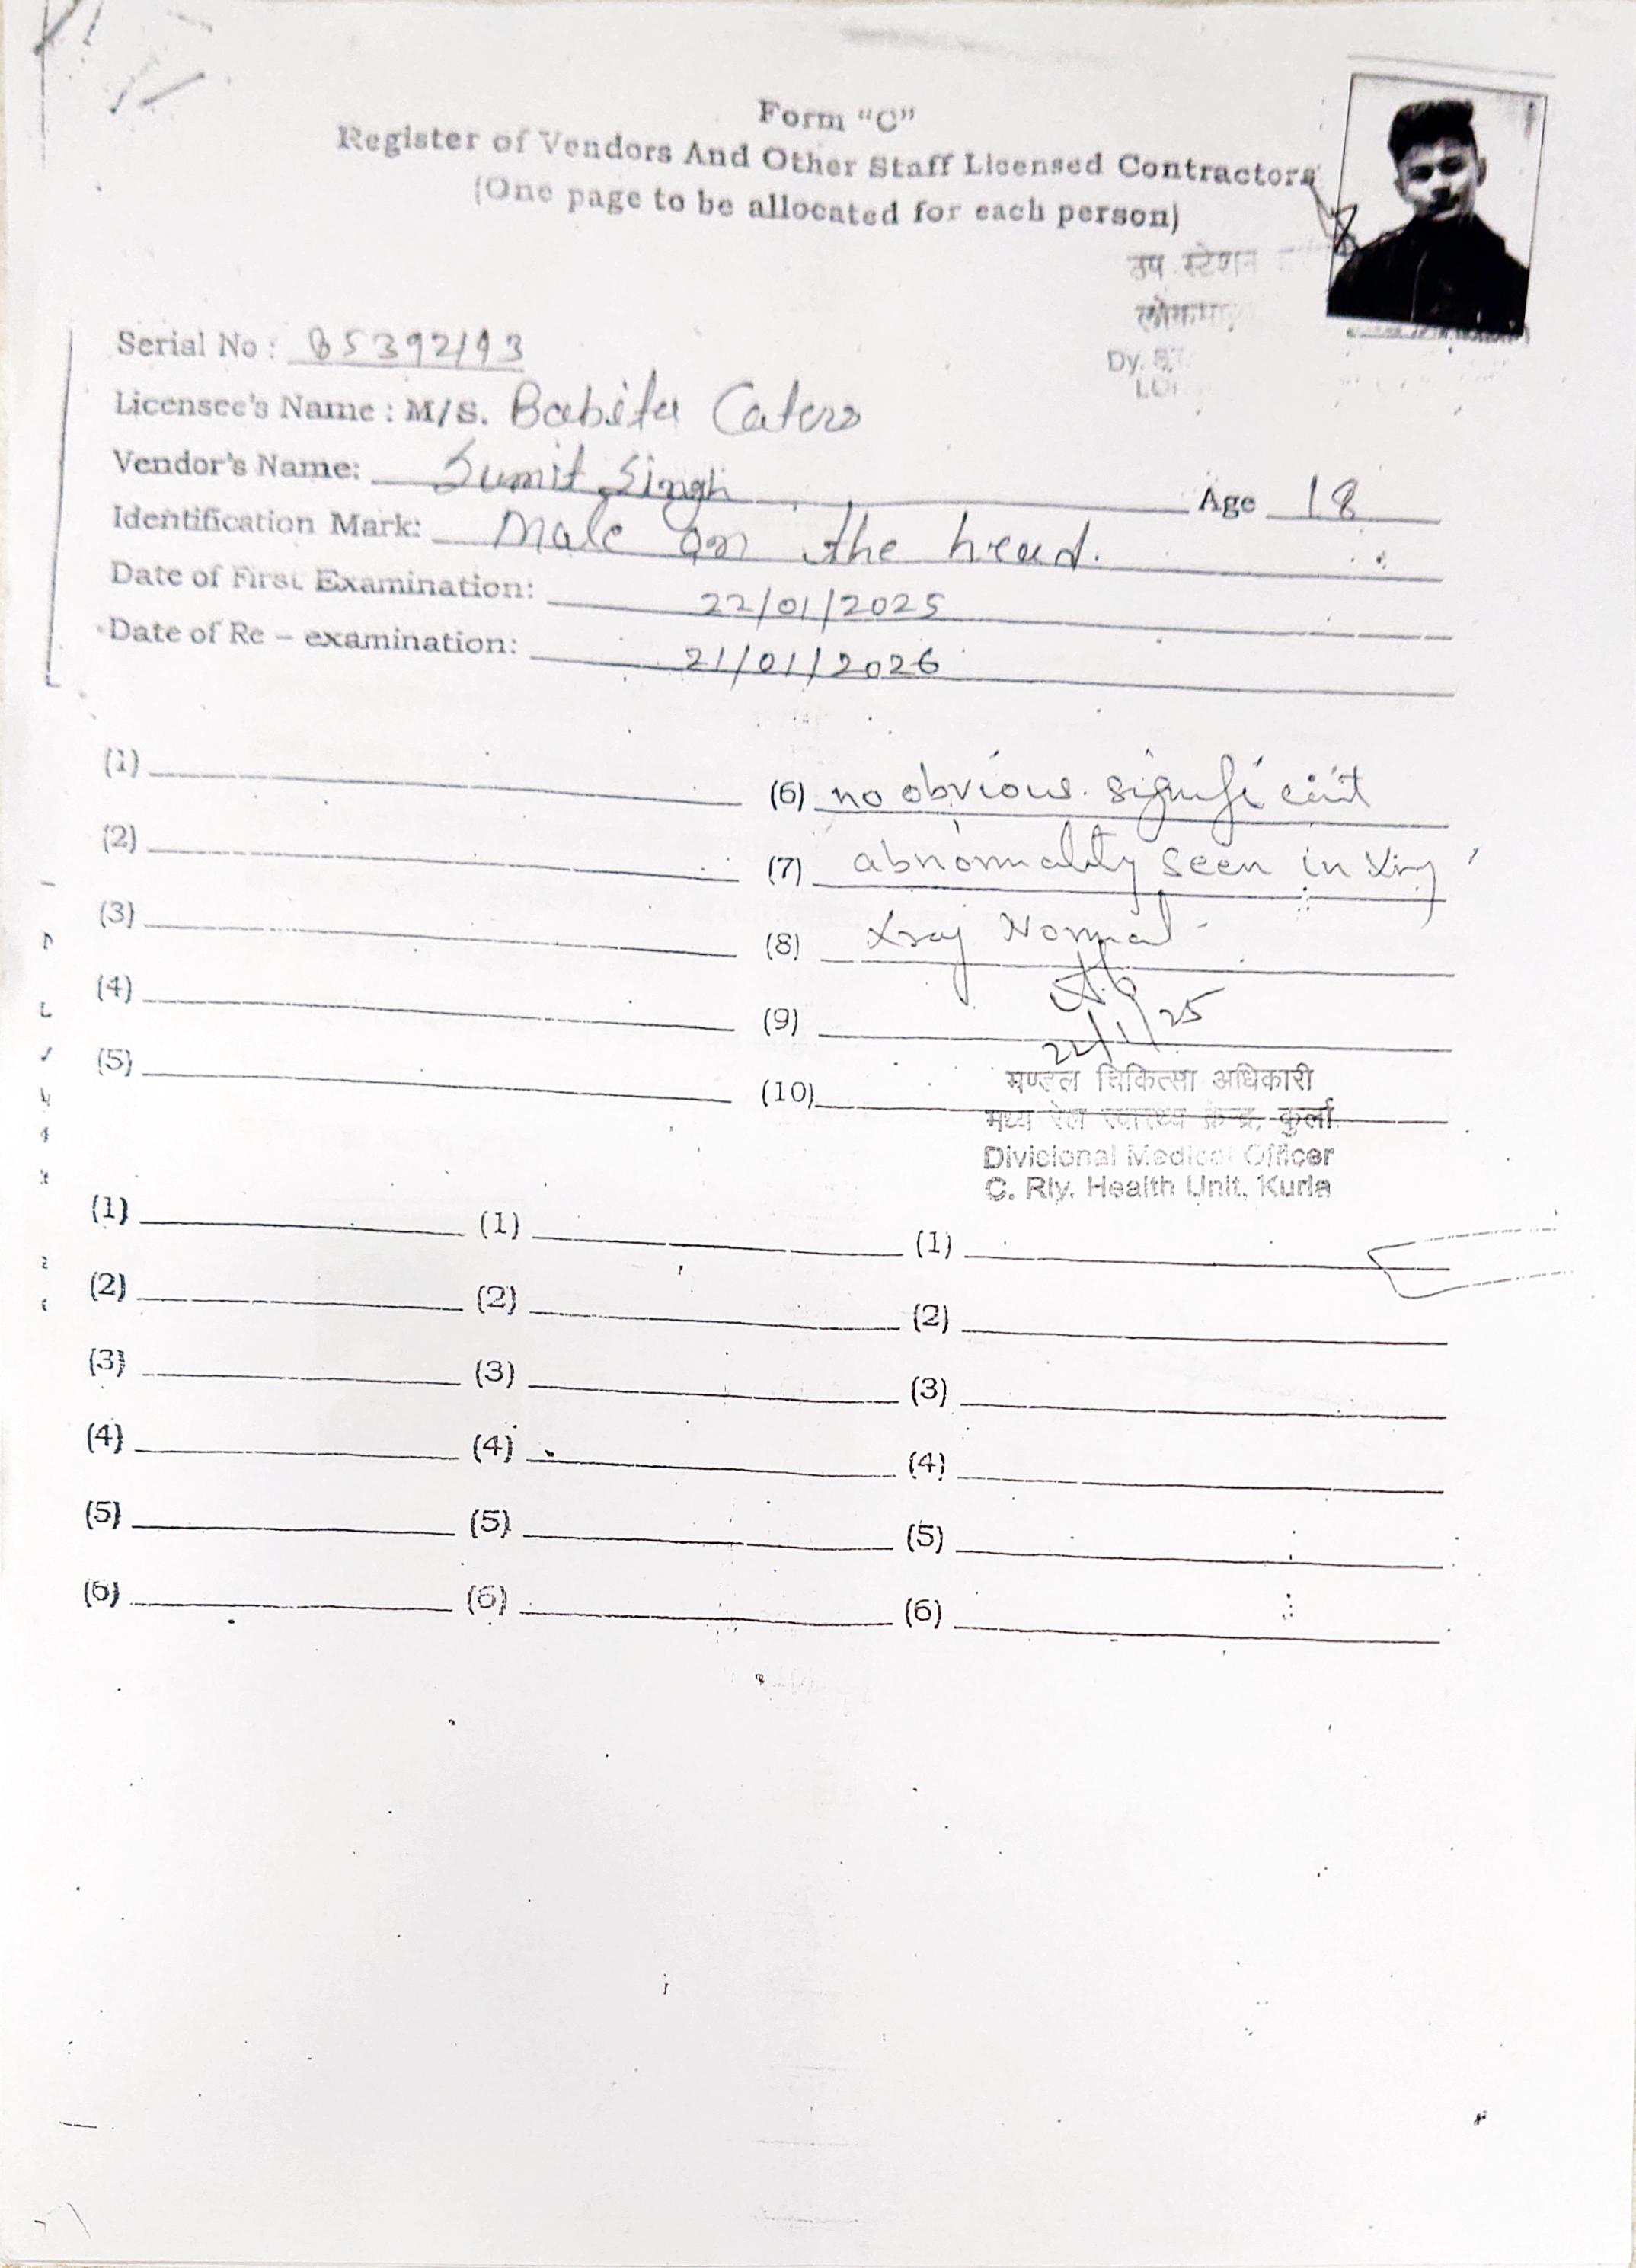 Form "C"
Register of Vendors And Other Staff Licensed Contractors
(One page to be allocated for each person)
उप स्टेशन
Dy.
Serial No : 85392193
Licensee's Name : M/S. Babita Caters
Vendor's Name: Sumit Singh Age 18
Identification Mark: Male on the head.
Date of First Examination: 22/01/2025
Date of Re - examination: 21/01/2026
(1) (6) no obvious significant
(2) (7) abnormality seen in Xray
(3) (8) Xray Normal
(4) (9) 22/1/25
(5) (10)
मण्डल चिकित्सा अधिकारी
मध्य रेल स्वास्थ्य केन्द्र, कुर्ला
Divisional Medical Officer
C. Rly. Health Unit, Kurla
(1) (1) (1)
(2) (2) (2)
(3) (3) (3)
(4) (4) (4)
(5) (5) (5)
(6) (6) (6)